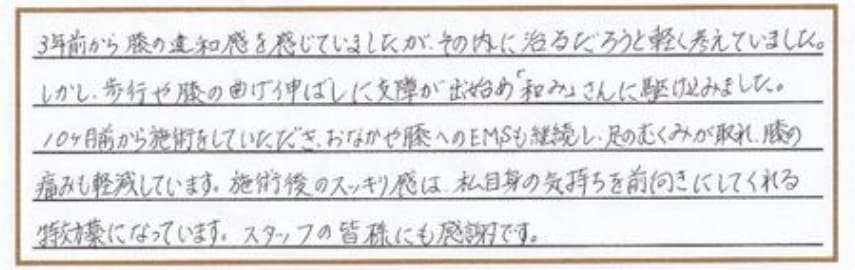 3年前から膝の違和感を感じていましたが、その内に治るだろうと軽く考えていました。
しかし、歩行や膝の曲げ伸ばしに支障が出始め「和み」さんに駆け込みました。
10ヶ月前から施術をしていただき、おなかや膝へのEMSも継続し、足のむくみが取れ、膝の
痛みも軽減しています。施術後のスッキリ感は、私自身の気持ちを前向きにしてくれる
特効薬になっています。スタッフの皆様にも感謝です。